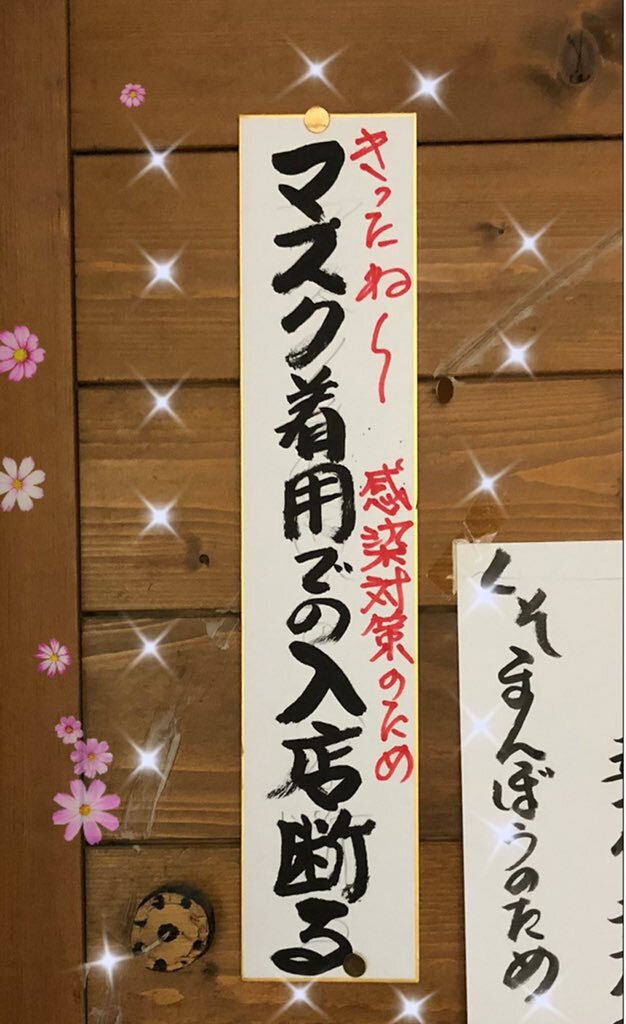 きったね〜 感染対策のため
マスク着用での入店断る
くそまんぼうのため